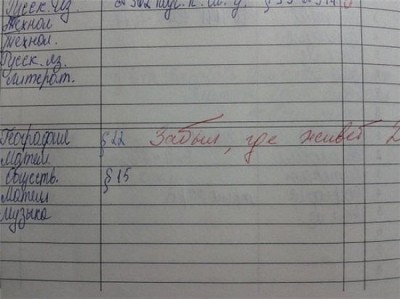 Русск. яз
Технол
Технол.
Русск. яз.
Литерат.
География § 22 Забыл, где живёт
Матем
Обществ. § 15
Матем
Музыка